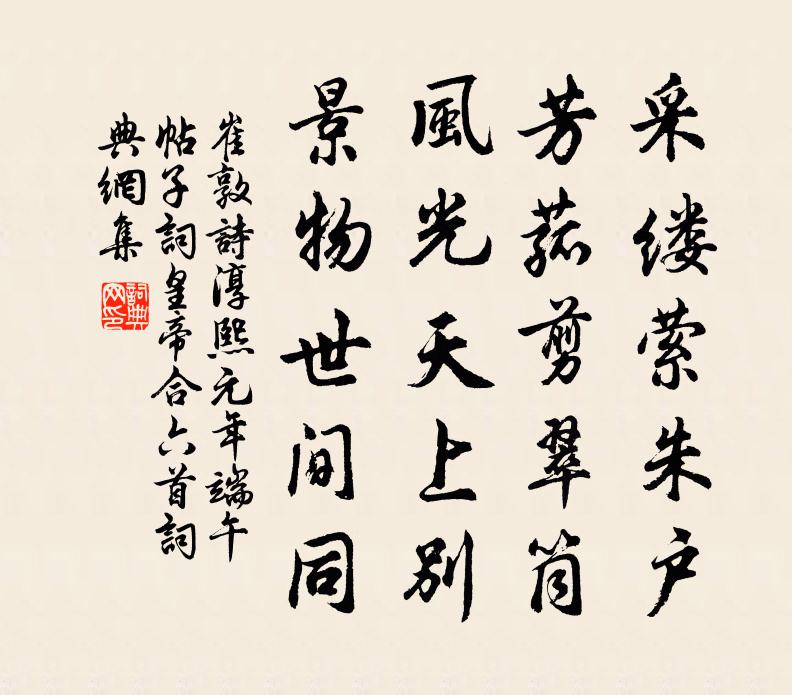 采缕萦朱户
芳菰剪翠筒
風光天上别
景物世间同
崔敦詩淳熙元年端午
帖子詞皇帝合六首詞
典網集
詞典網印